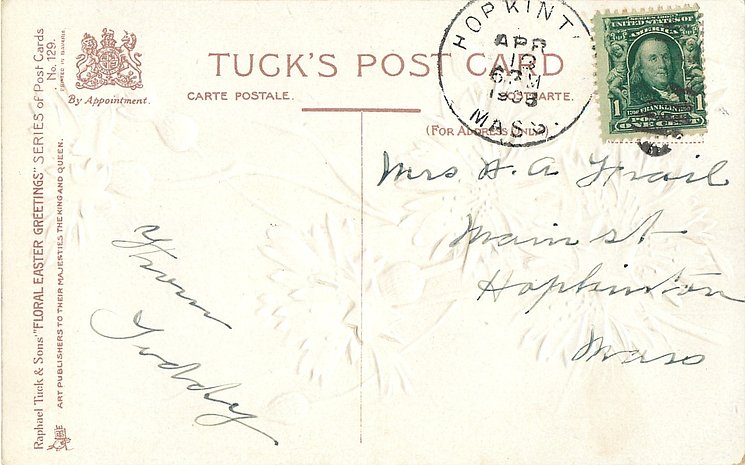 Raphael Tuck & Sons' "FLORAL EASTER GREETINGS" SERIES of Post Cards
No. 129.
ART PUBLISHERS TO THEIR MAJESTIES THE KING AND QUEEN.
PRINTED IN BAVARIA.
By Appointment.
TUCK'S POST CARD
CARTE POSTALE.
POSTKARTE.
(FOR ADDRESS ONLY.)
HOPKINT
APR
MASS.
SERIES 1902
UNITED STATES OF
AMERICA
1 FRANKLIN 1
POSTAGE
ONE CENT
Mrs H. A.
Main st
Hopkinton
Mass
From